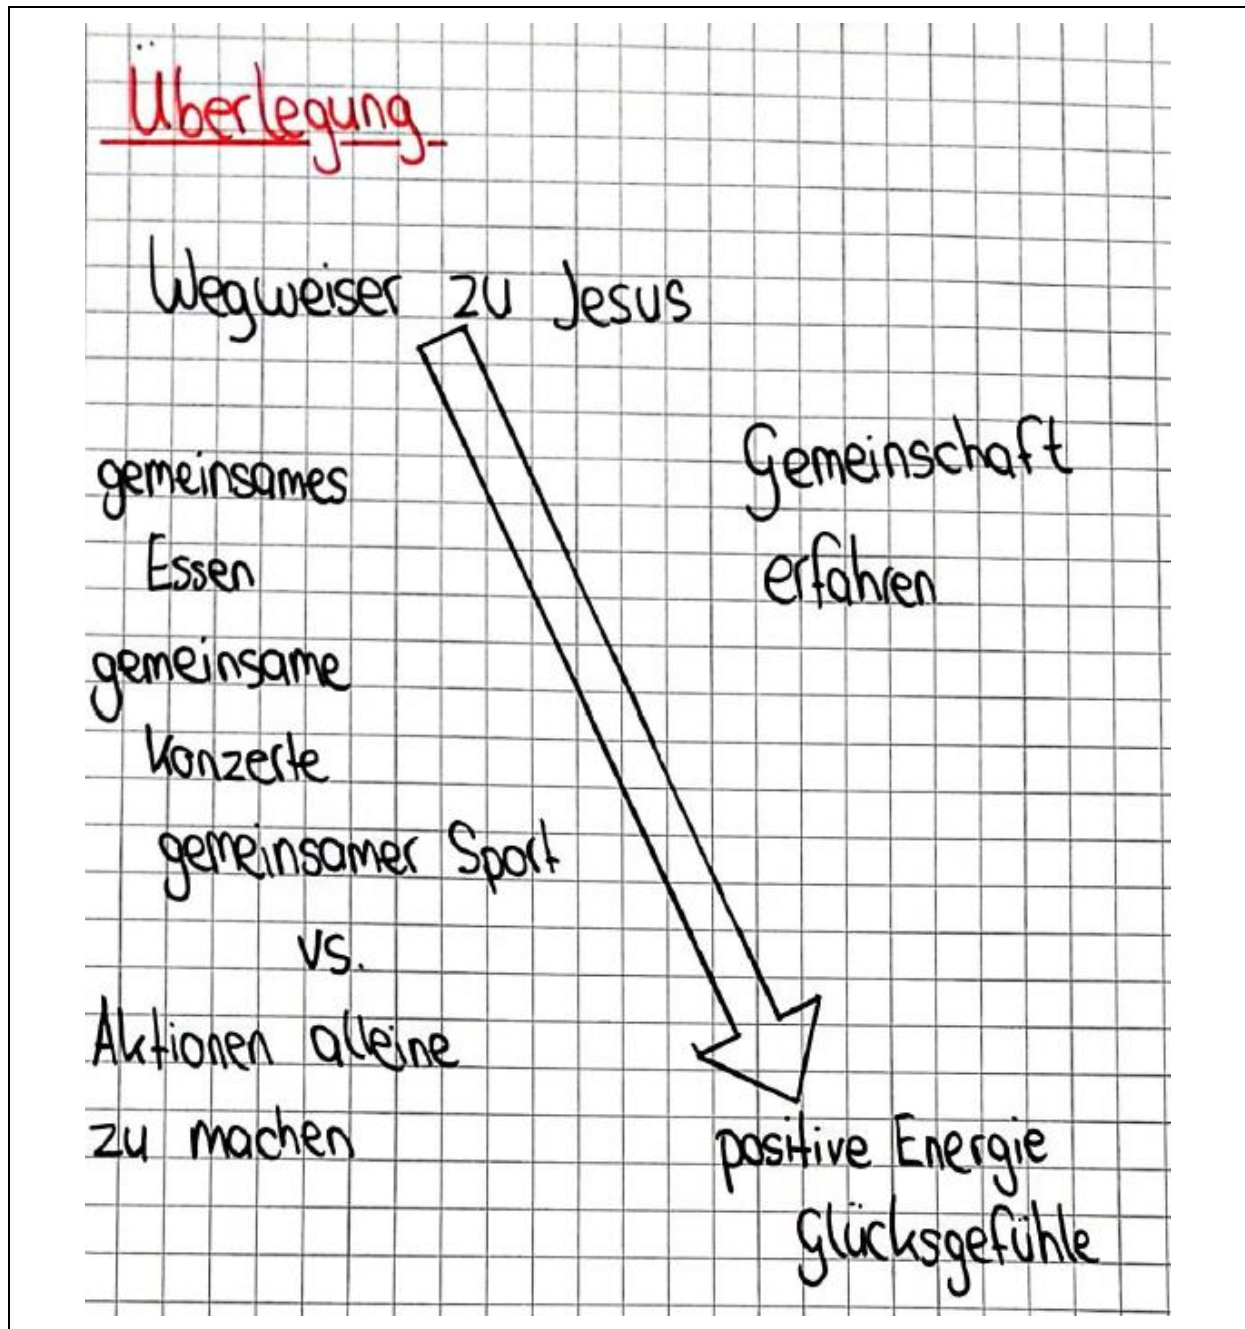 Überlegung
Wegweiser zu Jesus
gemeinsames
Essen
gemeinsame
Konzerte
gemeinsamer Sport
vs.
Aktionen alleine
zu machen
Gemeinschaft
erfahren
positive Energie
Glücksgefühle